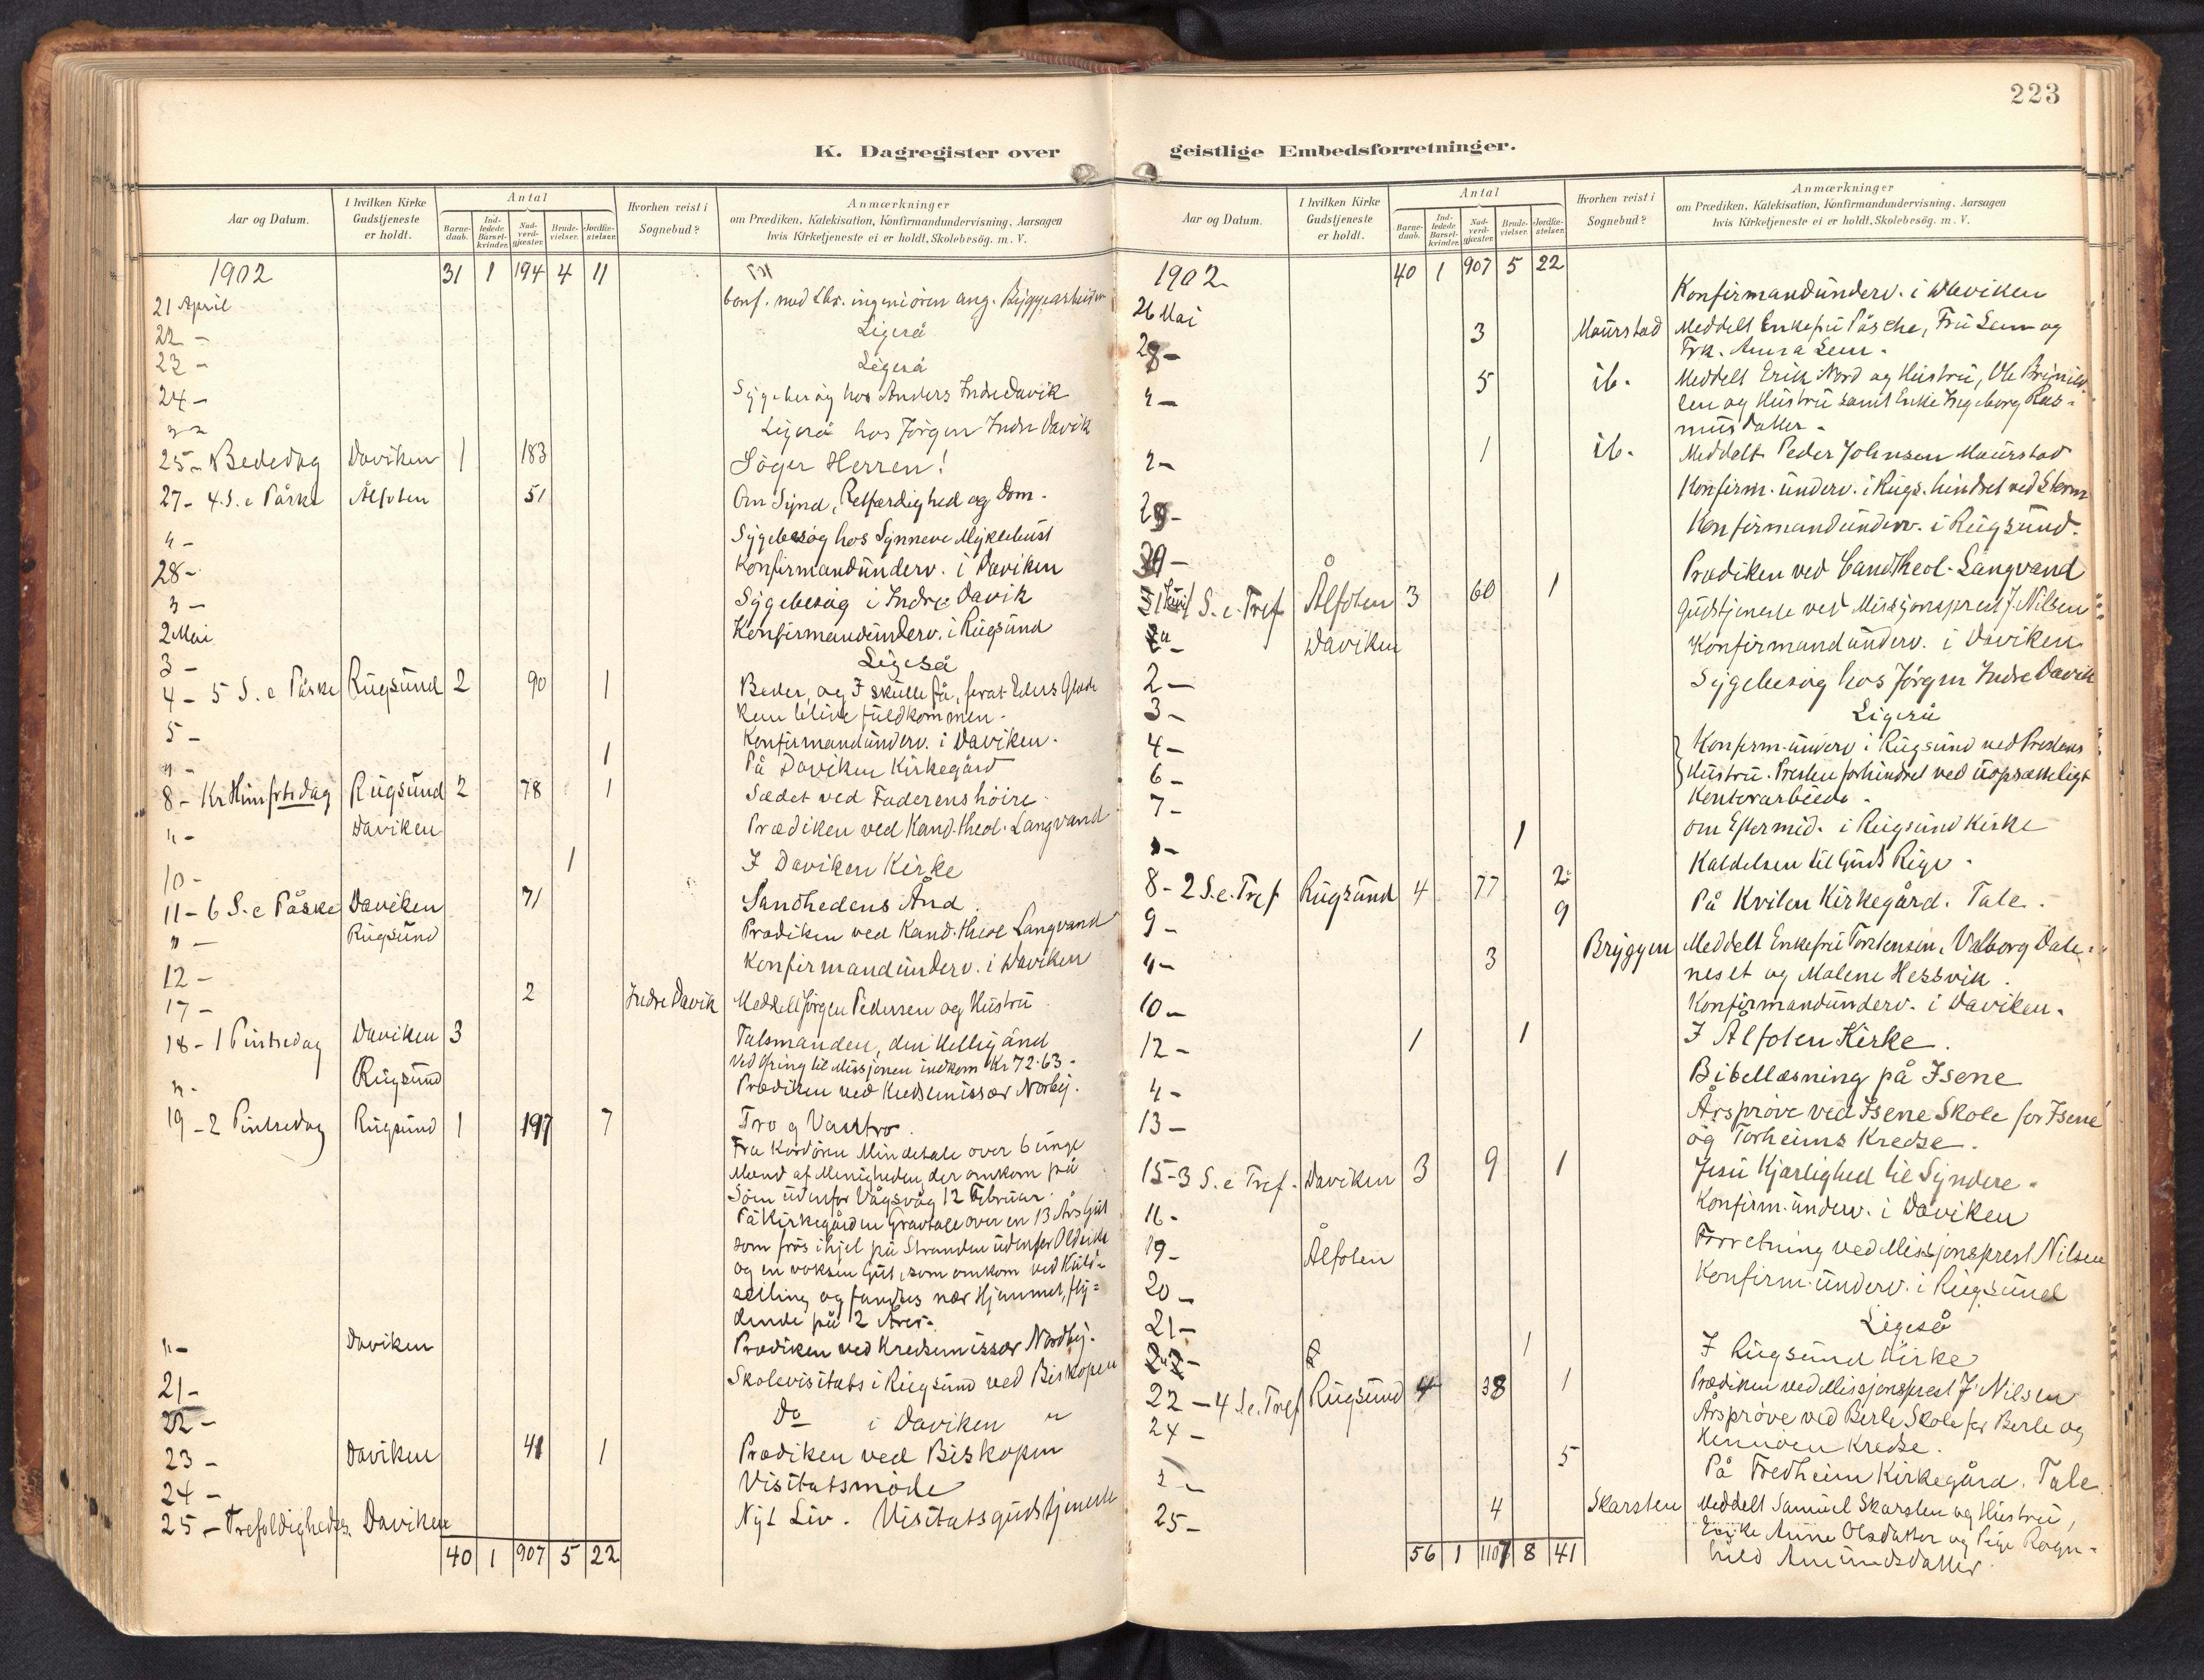 223
K. Dagregister over geistlige Embedsforretninger.
Aar og Datum. I hvilken Kirke Gudstjeneste er holdt. Antal Barne-daab. Ind-ledede Barsel-kvinder. Nad-verd-gjester. Brude-vielser. Jordfæ-stelser. Hvorhen reist i Sognebud? Anmærkninger om Prædiken, Katekisation, Konfirmandundervisning, Aarsagen hvis Kirketjeneste ei er holdt, Skolebesög. m. V.
1902 31 1 194 4 11
21 April Conf. med ingeniören ang. Byggearbeider
22 - Ligeså
23 - Ligeså
24 - Sygebesög hos Anders Indre Davik
"- Ligeså hos Jörgen Indre Davik
25 - Bededag Daviken 1 183 Söger Herren!
27 - 4. S. e Påske Ålfoten 51 Om Synd, Retfærdighed og Dom.
" - Sygebesög hos Synneve Myklebust
28 - Konfirmandunderv. i Daviken
" - Sygebesög i Indre Davik
2 Mai Konfirmandunderv. i Rugsund
3 - Ligeså
4 - 5 S. e Påske Rugsund 2 90 1 Beder, og I skulle få, forat Eders Glæde
kan blive fuldkommen.
5 - Konfirmandunderv. i Daviken.
" - 1 På Daviken Kirkegård
8 - Kr Himfrtsdag Rugsund 2 78 1 Sædet ved Faderens höire.
" - Daviken Prædiken ved Kand. theol. Langvand
10 - 1 I Daviken Kirke
11 - 6 S. e Påske Daviken 71 Sandhedens Ånd.
" - Rugsund Prædiken ved Kand. theol Langvand
12 - Konfirmandunderv. i Daviken
17 - 2 Indre Davik Meddelt Jörgen Pedersen og Hustru
18 - 1 Pintsedag Daviken 3 Talsmanden, den Hellig ånd
Ved Ofring til Missjonen indkom Kr 72.63.
" - Rugsund Prædiken ved Kredsemissær Nordby.
19 - 2 Pintsedag Rugsund 1 197 7 Tro og Vantro.
Fra Kordören Mindetale over 6 unge
Mænd af Menigheden, der omkom på
Söen udenfor Vågsvåg 12 Februar.
På Kirkegården Gravtale over en 13 Års Gut
som frös ihjel på Stranden udenfor Oldeide
og en voksen Gut, som omkom ved Kuld-
seiling og fandtes nær Hjemmet, fly=
dende på 2 Årer.
" - Daviken Prædiken ved Kredsemissær Nordby.
21 - Skolevisitats i Rugsund ved Biskopen
22 - Do i Daviken "
23 - Daviken 41 1 Prædiken ved Biskopen
24 - Visitatsmöde
25 - Trefoldigheds. Daviken Nyt Liv. Visitatsgudstjeneste
40 1 907 5 22
Aar og Datum. I hvilken Kirke Gudstjeneste er holdt. Antal Barne-daab. Ind-ledede Barsel-kvinder. Nad-verd-gjester. Brude-vielser. Jordfæ-stelser. Hvorhen reist i Sognebud? Anmærkninger om Prædiken, Katekisation, Konfirmandundervisning, Aarsagen hvis Kirketjeneste ei er holdt, Skolebesög. m. V.
1902 40 1 907 5 22
26 Mai Konfirmandunderv. i Daviken
28 - 3 Maurstad Meddelt Enkefru Påsche, Fru Lem og
Frk. Anna Lem.
" - 5 ib. Meddelt Erik Nord og Hustru, Ole
sen og Hustru samt Enke Ingeborg Ras=
musdatter.
" - 1 ib. Meddelt Peder Johnsen Maurstad
29 - Konfirm. underv. i Rugs. hindret ved Storm
Konfirmandunderv. i Rugsund.
S. e. Tref Ålfoten 3 60 1 Prædiken ved Cand theol. Langvand
Daviken Gudstjeneste ved Missjonsprest J. Nilsen
2 - Konfirmandunderv. i Daviken
3 - Sygebesög hos Jörgen Indre Davik
4 - Ligeså
6 - Konfirm. underv i Rugsund ved Prestens
7 - Hustru. Presten forhindret ved uopsætteligt
Kontorarbeide.
" - 1 om Eftermid. i Rugsund Kirke
8 - 2 S. e. Tref Rugsund 4 77 2 Kaldelsen til Guds Rige.
9 - 9 På Kvilen Kirkegård. Tale.
" - 3 Bryggen Meddelt Enkefru Torstensen, Valborg Dale=
neset og Malene Hessvik.
10 - Konfirmandunderv. i Daviken.
12 - 1 1 I Ålfoten Kirke.
" - Bibellæsning på Isene
13 - Årspröve ved Isene Skole for Isene
og Torheims Kredse.
15 - 3 S. e Tref. Daviken 3 9 1 Jesu Kjærlighed til Syndere.
16 - Konfirm. underv. i Daviken
19 - Ålfoten Forretning ved Missjonsprest Nilsen
20 - Konfirm. underv. i Rugsund
21 - Ligeså
1 I Rugsund Kirke
22 - 4 S. e. Tref Rugsund 4 38 1 Prædiken ved Missjonsprest J. Nilsen
24 - Årspröve ved Berle Skole for Berle og
Hennöen Kredse.
" - 5 På Fredheim Kirkegård. Tale
25 - 4 Skarsten Meddelt Samuel Skarsten og Hustru,
Enke Anne Olsdatter og Pige Ragn=
hild Amundsdatter.
56 1 1107 8 41